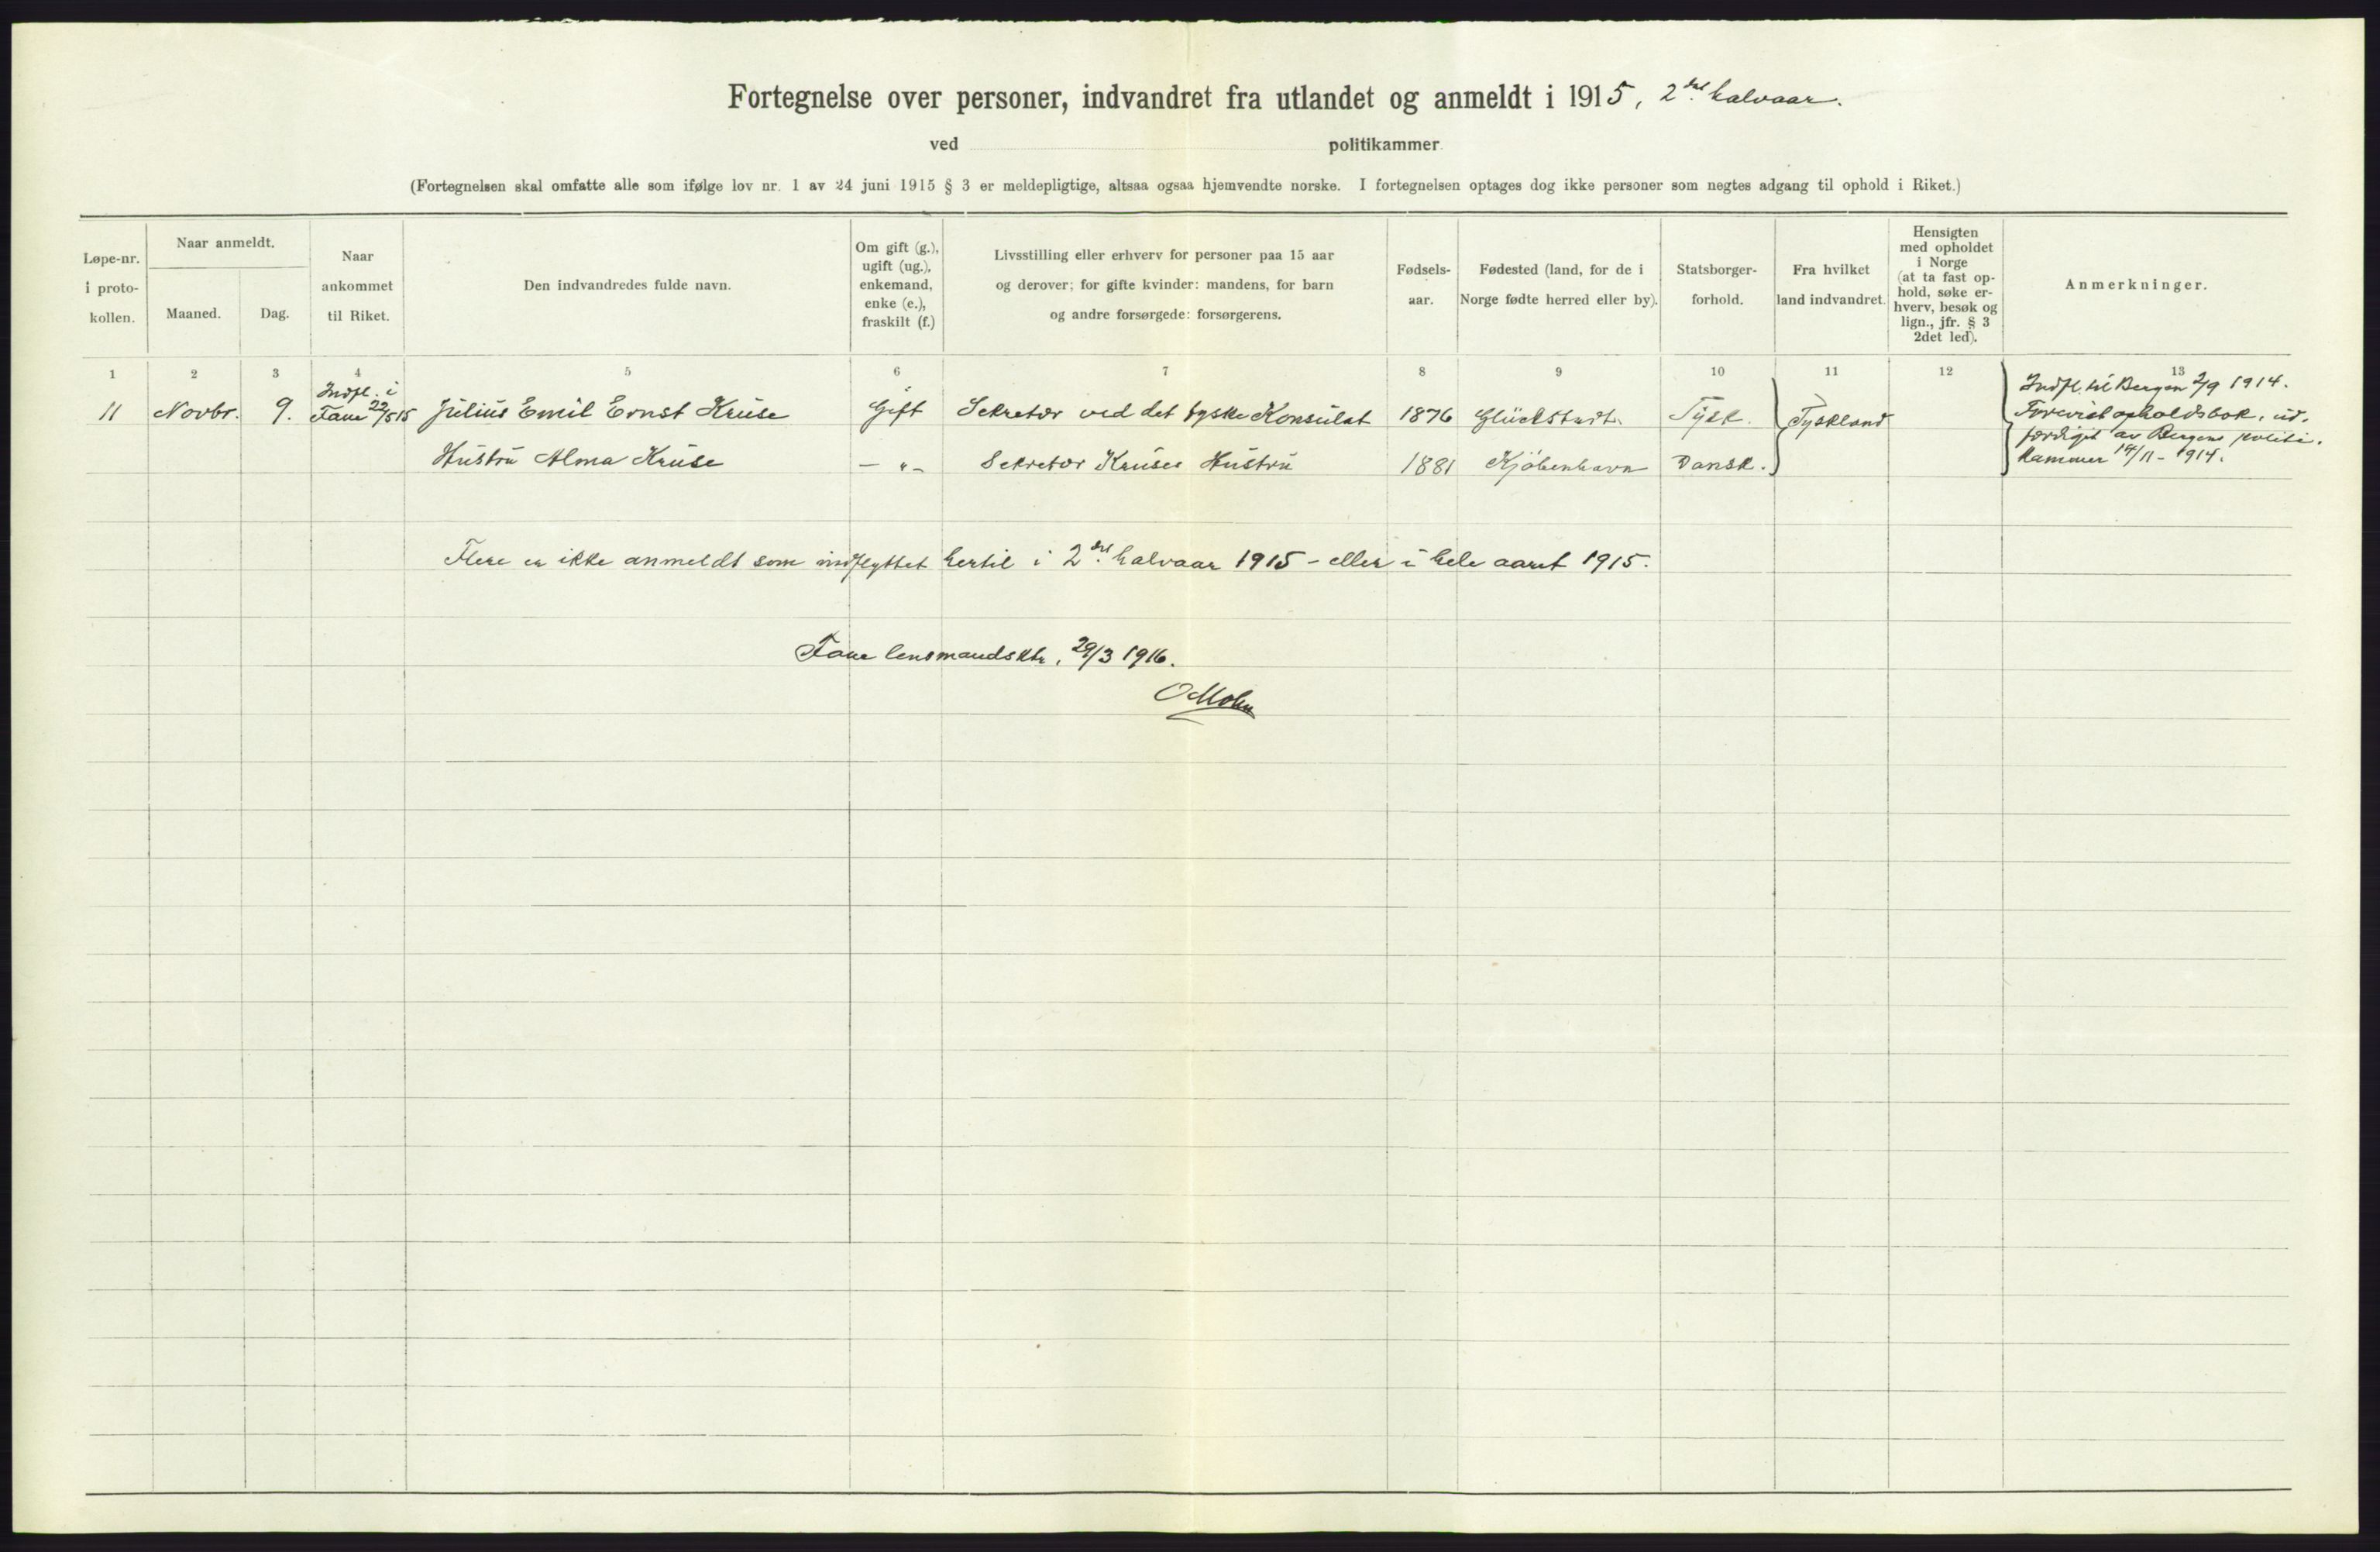 Fortegnelse over personer, indvandret fra utlandet og anmeldt i 1915, 2det halvaar.
ved politikammer
(Fortegnelsen skal omfatte alle som ifølge lov nr. 1 av 24 juni 1915 § 3 er meldepligtige, altsaa ogsaa hjemvendte norske. I fortegnelsen optages dog ikke personer som negtes adgang til ophold i Riket.)
Løpe-nr.
i proto-
kollen.
Naar anmeldt.
Maaned.
Dag.
Naar
ankommet
til Riket.
Den indvandredes fulde navn.
Om gift (g.),
ugift (ug.),
enkemand,
enke (e.),
fraskilt (f.)
Livsstilling eller erhverv for personer paa 15 aar
og derover; for gifte kvinder: mandens, for barn
og andre forsørgede: forsørgerens.
Fødsels-
aar.
Fødested (land, for de i
Norge fødte herred eller by).
Statsborger-
forhold.
Fra hvilket
land indvandret.
Hensigten
med opholdet
i Norge
(at ta fast op-
hold, søke er-
hverv, besøk og
lign., jfr. § 3
2det led).
Anmerkninger.
1 2 3 4 5 6 7 8 9 10 11 12 13
11 Novbr. 9.
Indfl. i
Fane 22/5 15
Julius Emil Ernst Kruse Gift Sekretær ved det tyske Konsulat 1876 Glückstadt. Tysk. Tyskland
Indfl. til Bergen 2/9 1914.
Forevist opholdsbok, ud-
færdiget av Bergens politi-
kammer 14/11 - 1914.
Hustru Alma Kruse — " — Sekretær Kruses Hustru 1881 Kjøbenhavn Dansk.
Flere er ikke anmeldt som indflyttet hertil i 2det halvaar 1915 - eller i hele aaret 1915.
Fane lensmandsktr, 29/3 1916.
O Mohn